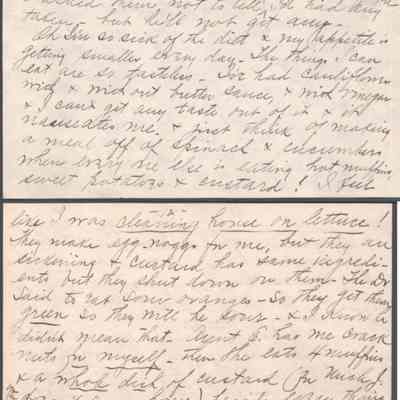 asked them not to tell, I've had any
taken - but he'll not get any.
Oh I'm so sick of the diet & my appetite is
getting smaller every day - The things I can
eat are so tasteless - I've had cauliflower
with & without butter sauce, & with vinegar
& I can't get any taste out of it & it
nauseates me. & just think of making
a meal off of spinach & cucumbers
when every one else is eating hot muffins
sweet potatoes & custard! I feel
12
like I was cleaning house on lettuce!
They make egg-noggs for me, but they are
sickening & custard has same ingredi-
ents but they shut down on them - The Dr
said to eat sour oranges - So they get them
green so they will be sour - & I know he
didn't mean that. Aunt S. has me crack
nuts for myself - then she eats 4 muffins
& a whole dish of custard